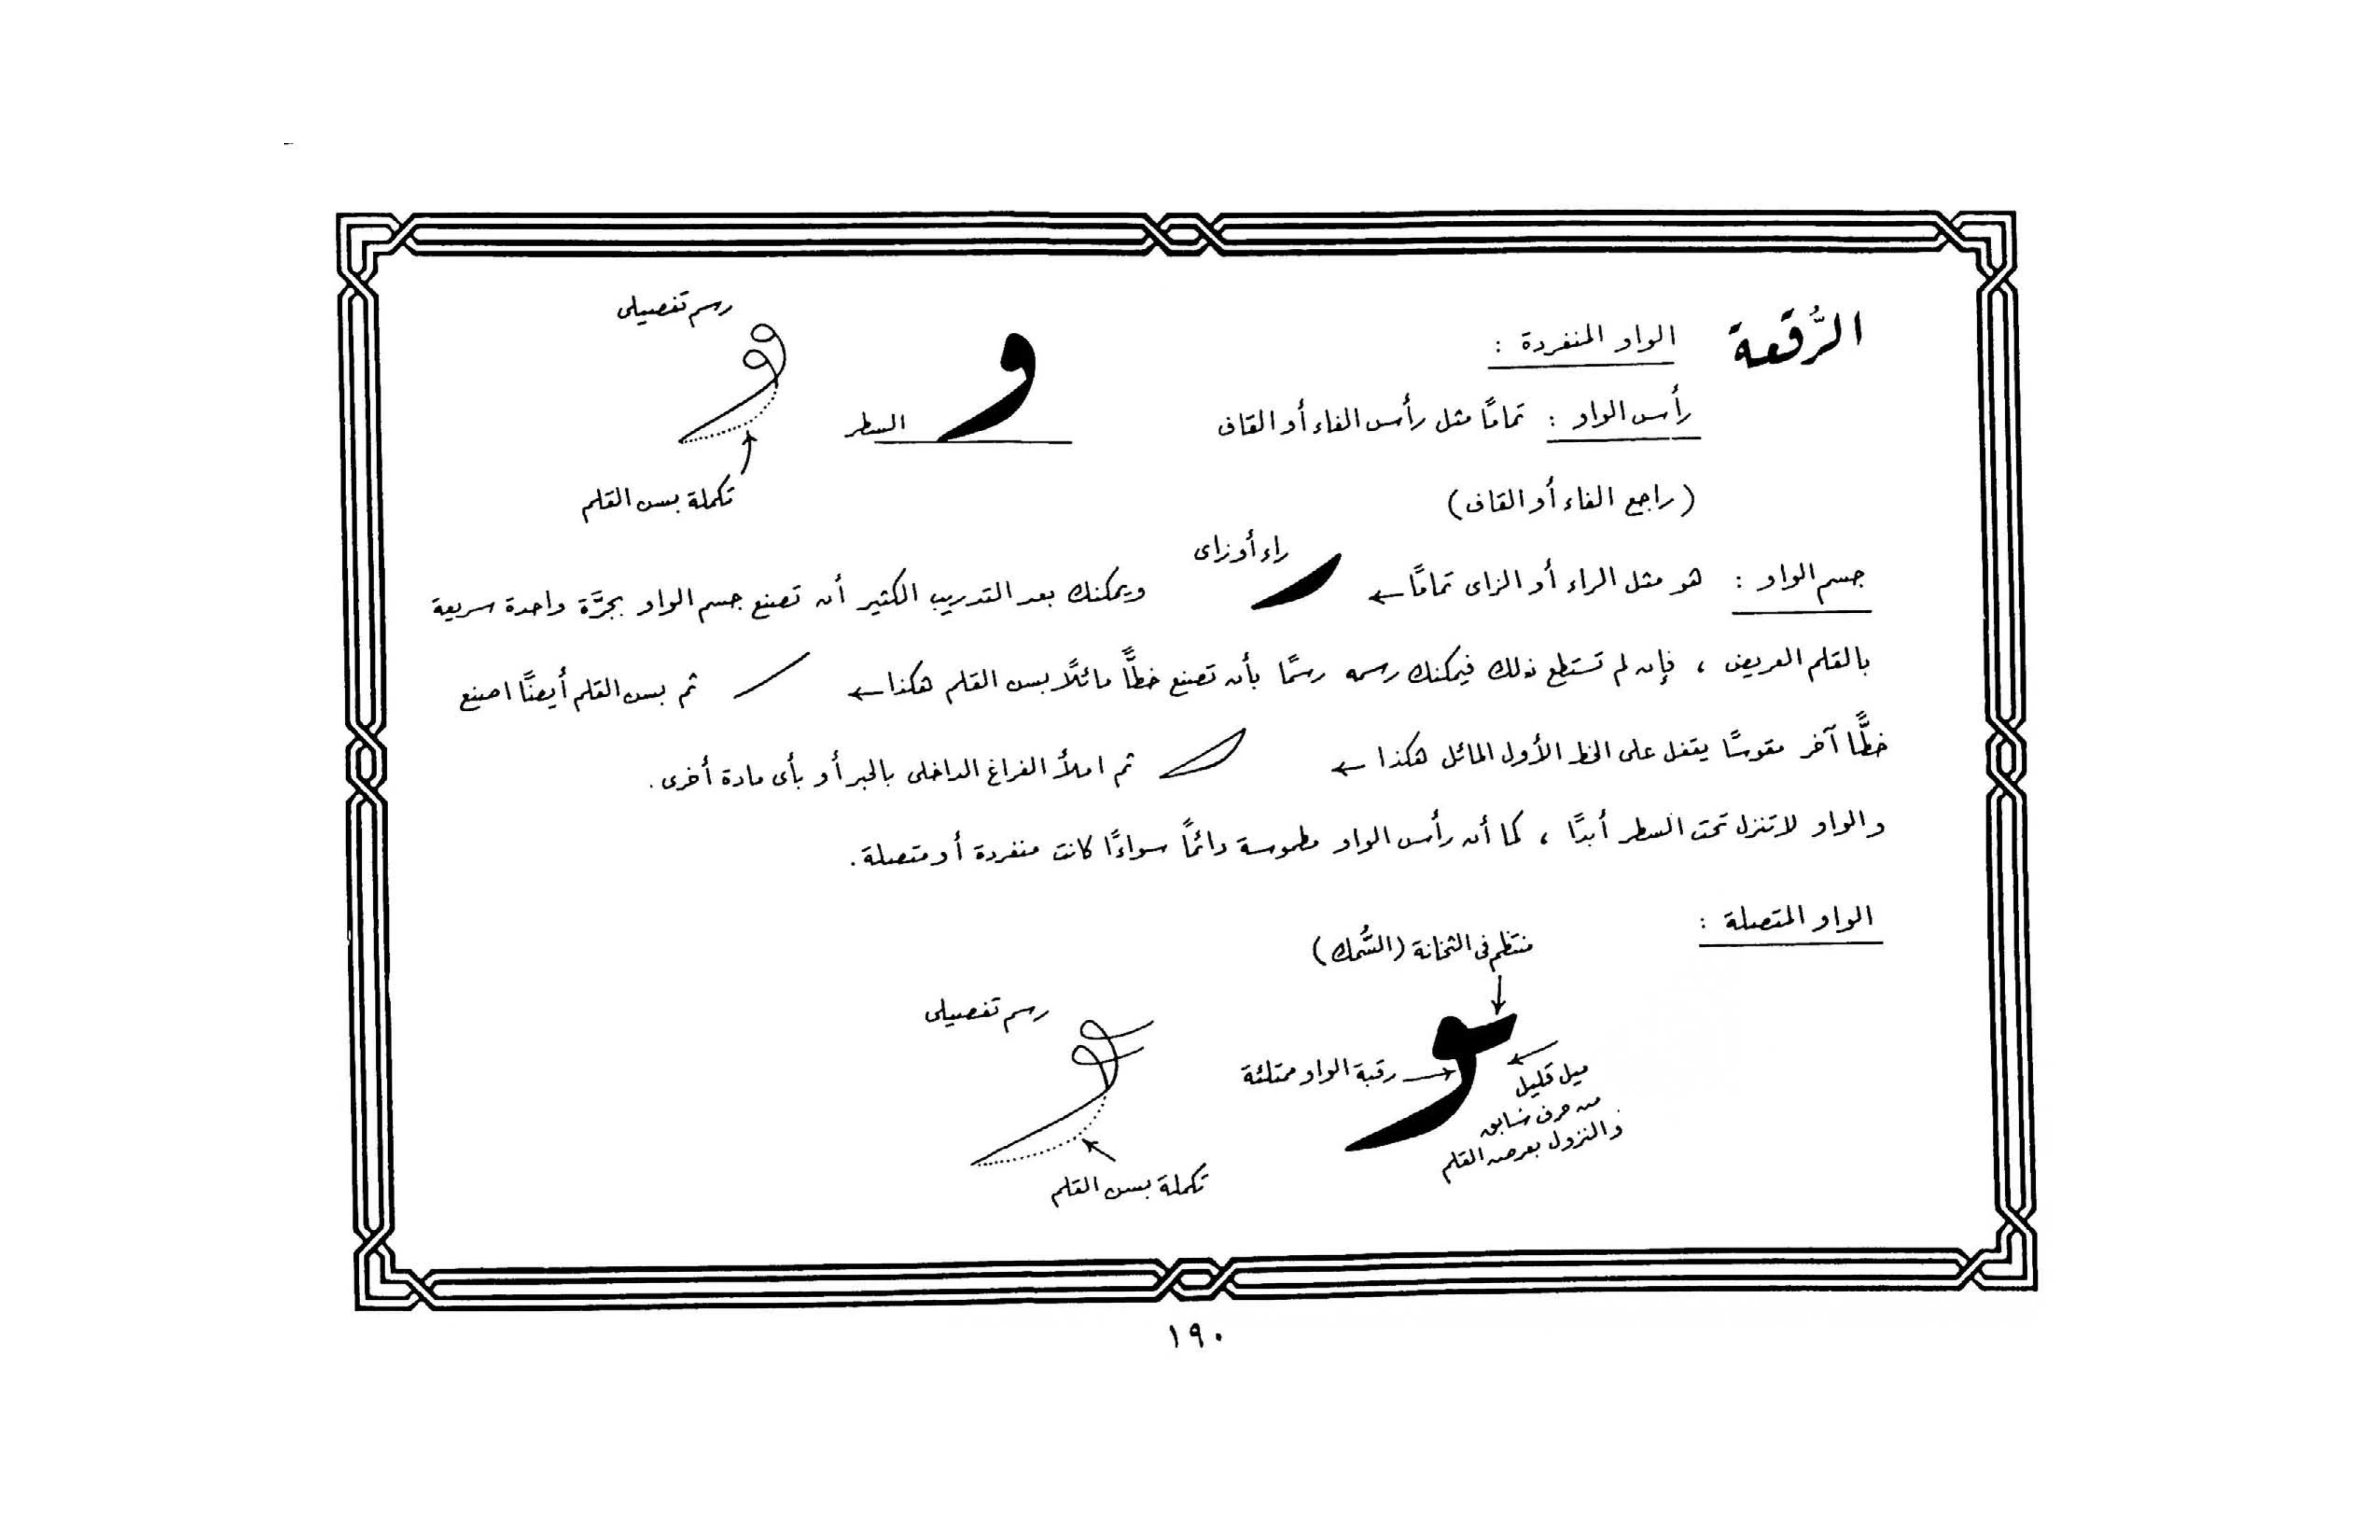 الرُّقعة
الواو المنفردة :
رسم تفصيلى
رأس الواو : تمامًا مثل رأس الفاء أو القاف
السطر
(راجع الفاء أو القاف)
تكملة بسن القلم
راء أو زاى
جسم الواو : هو مثل الراء أو الزاى تمامًا ← ويمكنك بعد التدريب الكثير أن تصنع جسم الواو بجرَّة واحدة سريعة
بالقلم العريض ، فإن لم تستطع ذلك فيمكنك رسمه رسمًا بأن تصنع خطًّا مائلًا بسن القلم هكذا ← ثم بسن القلم أيضًا اصنع
خطًّا آخر مقوسًا يقفل على الخط الأول المائل هكذا ← ثم املأ الفراغ الداخلى بالحبر أو بأى مادة أخرى .
والواو لا تنزل تحت السطر أبدًا ، كما أن رأس الواو مطموسة دائمًا سواءًا كانت منفردة أو متصلة .
الواو المتصلة :
منتظم فى الثخانة (السُّمك)
رسم تفصيلى
رقبة الواو ممتلئة
ميل قليل
من حرف سابق
والنزول بعرض القلم
تكملة بسن القلم
١٩٠